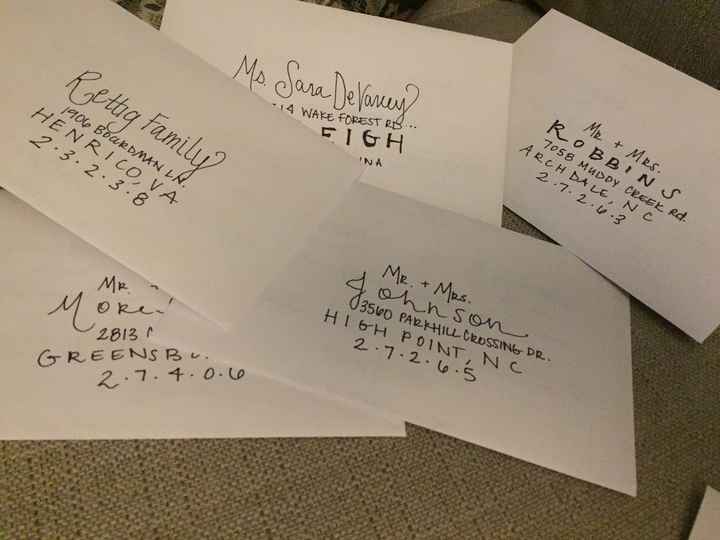 Rettig Family
1906 BOARDMAN LN.
HENRICO, VA
2.3.2.3.8
Ms. Sara DeVaney
14 WAKE FOREST RD...
EIGH
INA
MR. + MRS.
ROBBINS
7058 MUDDY CREEK Rd.
ARCHDALE, NC
2.7.2.6.3
MR.
2813
GREENSB
2.7.4.0.6
MR. + MRS.
Johnson
3560 PARKHILL CROSSING DR.
HIGH POINT, NC
2.7.2.6.5